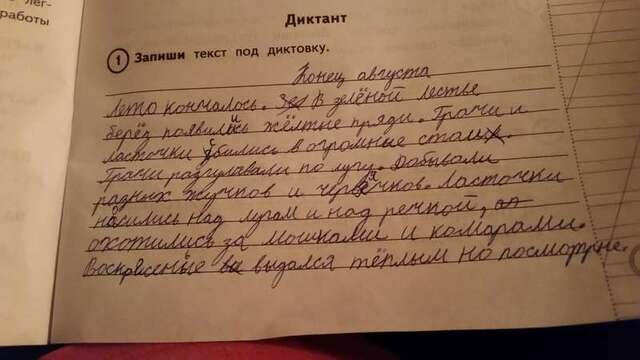 лег-
работы
Диктант
1 Запиши текст под диктовку.
Конец августа
Лето кончалось. В зелёной лестве
берёз появились жёлтые пряди. Грачи и
ласточки сбились в огромные стаи.
Грачи разгуливали по лугу. Добывали
разных жучков и червячков. Ласточки
насились над лугам и над речкой,
охотились за мошками и комарами.
Воскрисенье выдался тёплым но